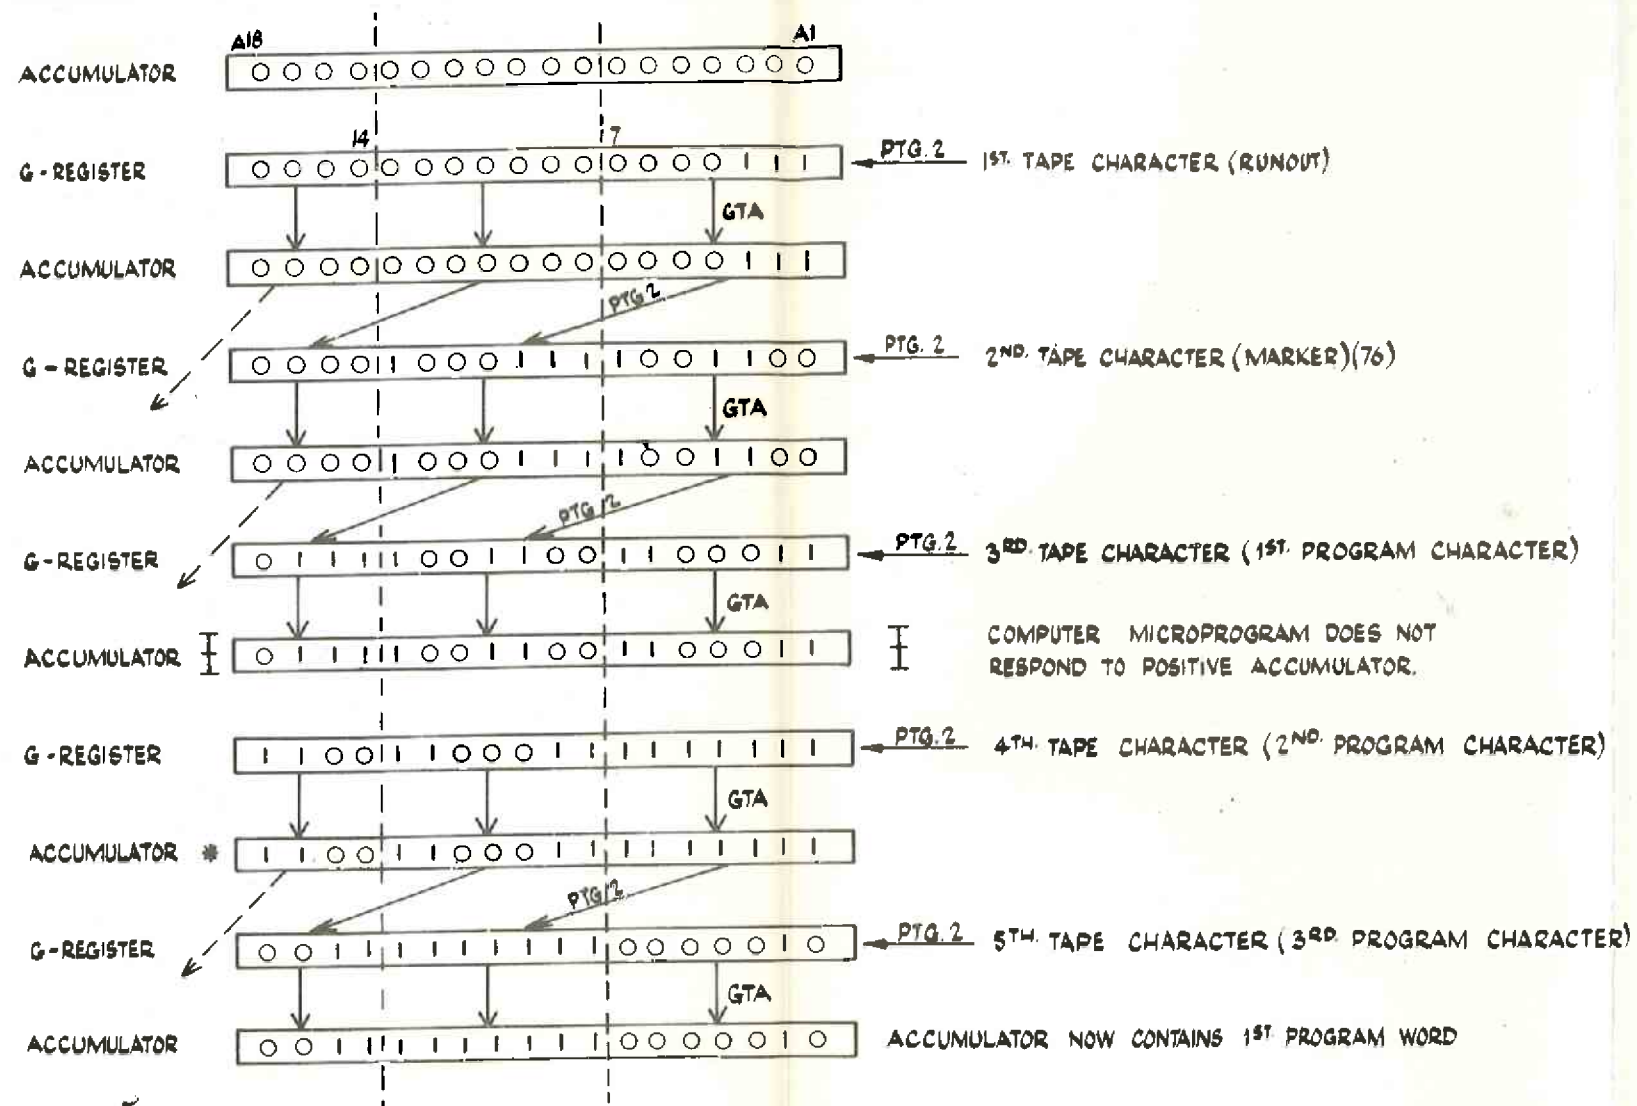 A18 A1
ACCUMULATOR 0 0 0 0 0 0 0 0 0 0 0 0 0 0 0 0 0 0
14 7
G-REGISTER 0 0 0 0 0 0 0 0 0 0 0 0 0 0 0 1 1 1 PTG.2 1ST. TAPE CHARACTER (RUNOUT)
GTA
ACCUMULATOR 0 0 0 0 0 0 0 0 0 0 0 0 0 0 0 1 1 1
PTG 2
G-REGISTER 0 0 0 0 1 0 0 0 1 1 1 1 0 0 1 1 0 0 PTG. 2 2ND. TAPE CHARACTER (MARKER)(76)
GTA
ACCUMULATOR 0 0 0 0 1 0 0 0 1 1 1 1 0 0 1 1 0 0
PTG 2
G-REGISTER 0 1 1 1 1 0 0 1 1 0 0 1 1 0 0 0 1 1 PTG.2 3RD. TAPE CHARACTER (1ST. PROGRAM CHARACTER)
GTA
ACCUMULATOR 0 1 1 1 1 0 0 1 1 0 0 1 1 0 0 0 1 1 COMPUTER MICROPROGRAM DOES NOT
RESPOND TO POSITIVE ACCUMULATOR.
G-REGISTER 1 1 0 0 1 1 0 0 0 1 1 1 1 1 1 1 1 1 PTG.2 4TH. TAPE CHARACTER (2ND. PROGRAM CHARACTER)
GTA
ACCUMULATOR * 1 1 0 0 1 1 0 0 0 1 1 1 1 1 1 1 1 1
PTG 2
G-REGISTER 0 0 1 1 1 1 1 1 1 1 1 0 0 0 0 0 1 0 PTG.2 5TH. TAPE CHARACTER (3RD. PROGRAM CHARACTER)
GTA
ACCUMULATOR 0 0 1 1 1 1 1 1 1 1 1 0 0 0 0 0 1 0 ACCUMULATOR NOW CONTAINS 1ST. PROGRAM WORD